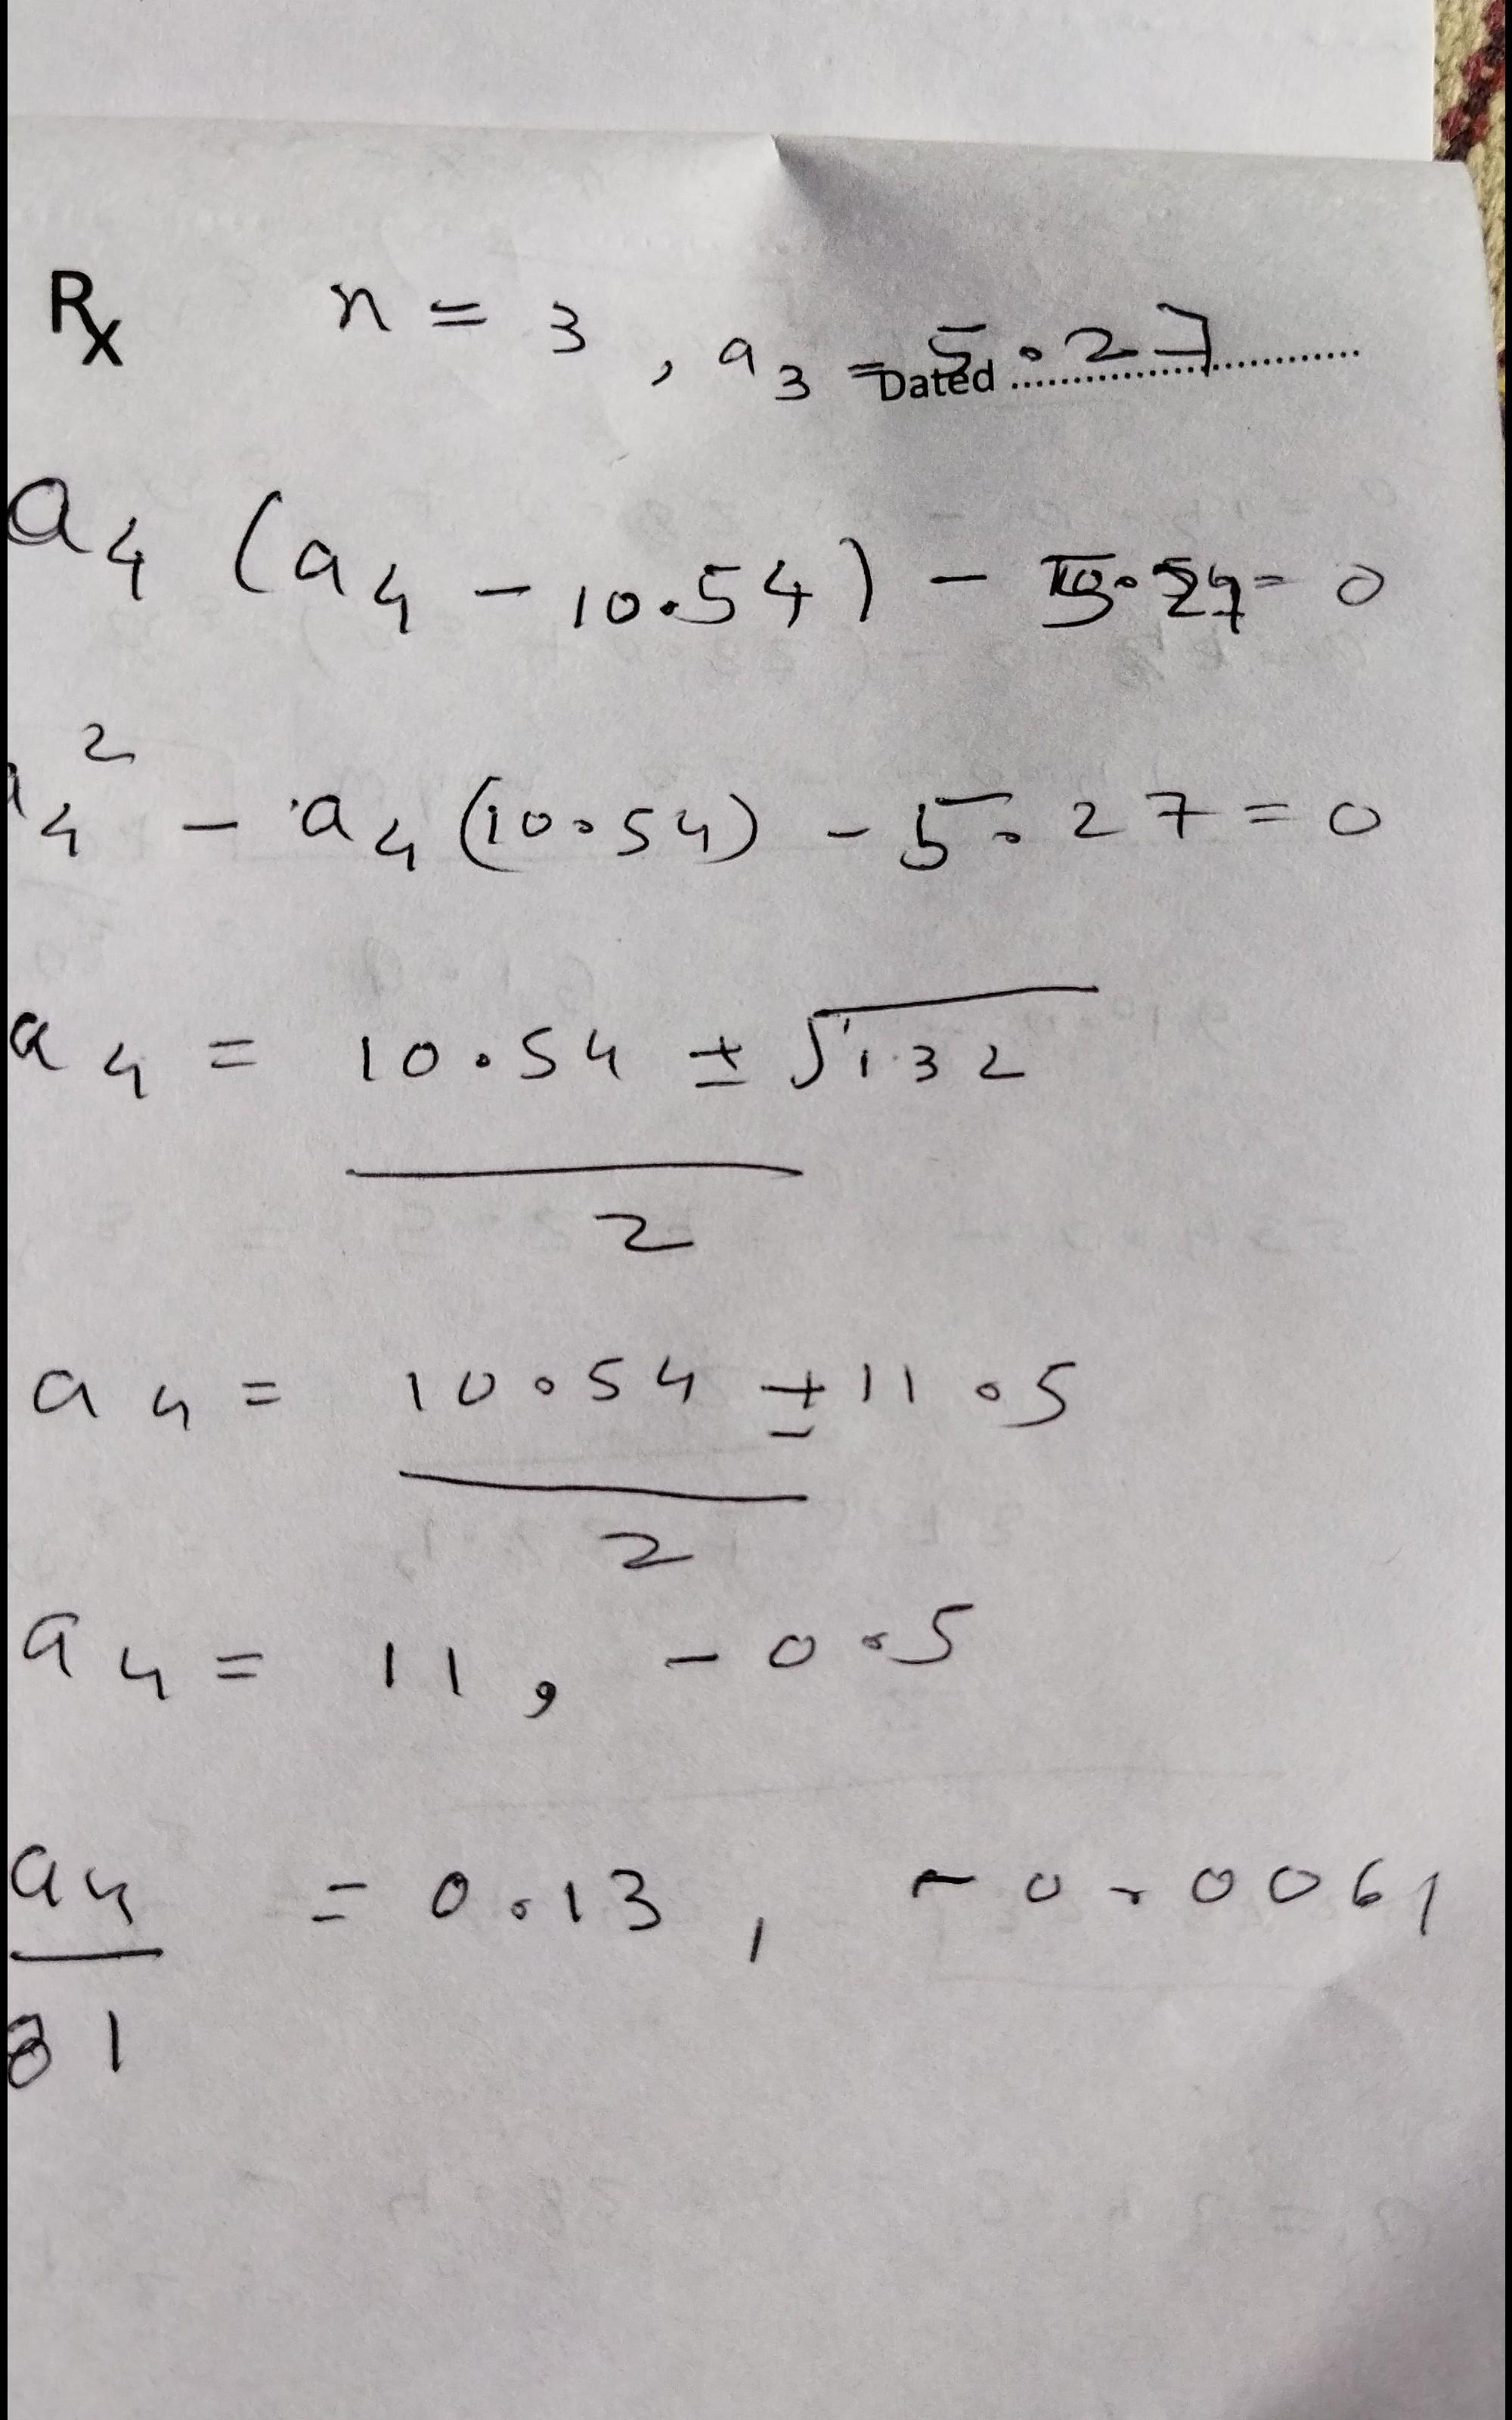 Rx n = 3 , a3 = 5.27
Dated ..............................
a4 (a4 - 10.54) - = 0
a4² - a4 (10.54) - 5.27 = 0
a4 = 10.54 ± √132
2
a4 = 10.54 ± 11.5
2
a4 = 11 , - 0.5
a4 = 0.13 , - 0.0061
81